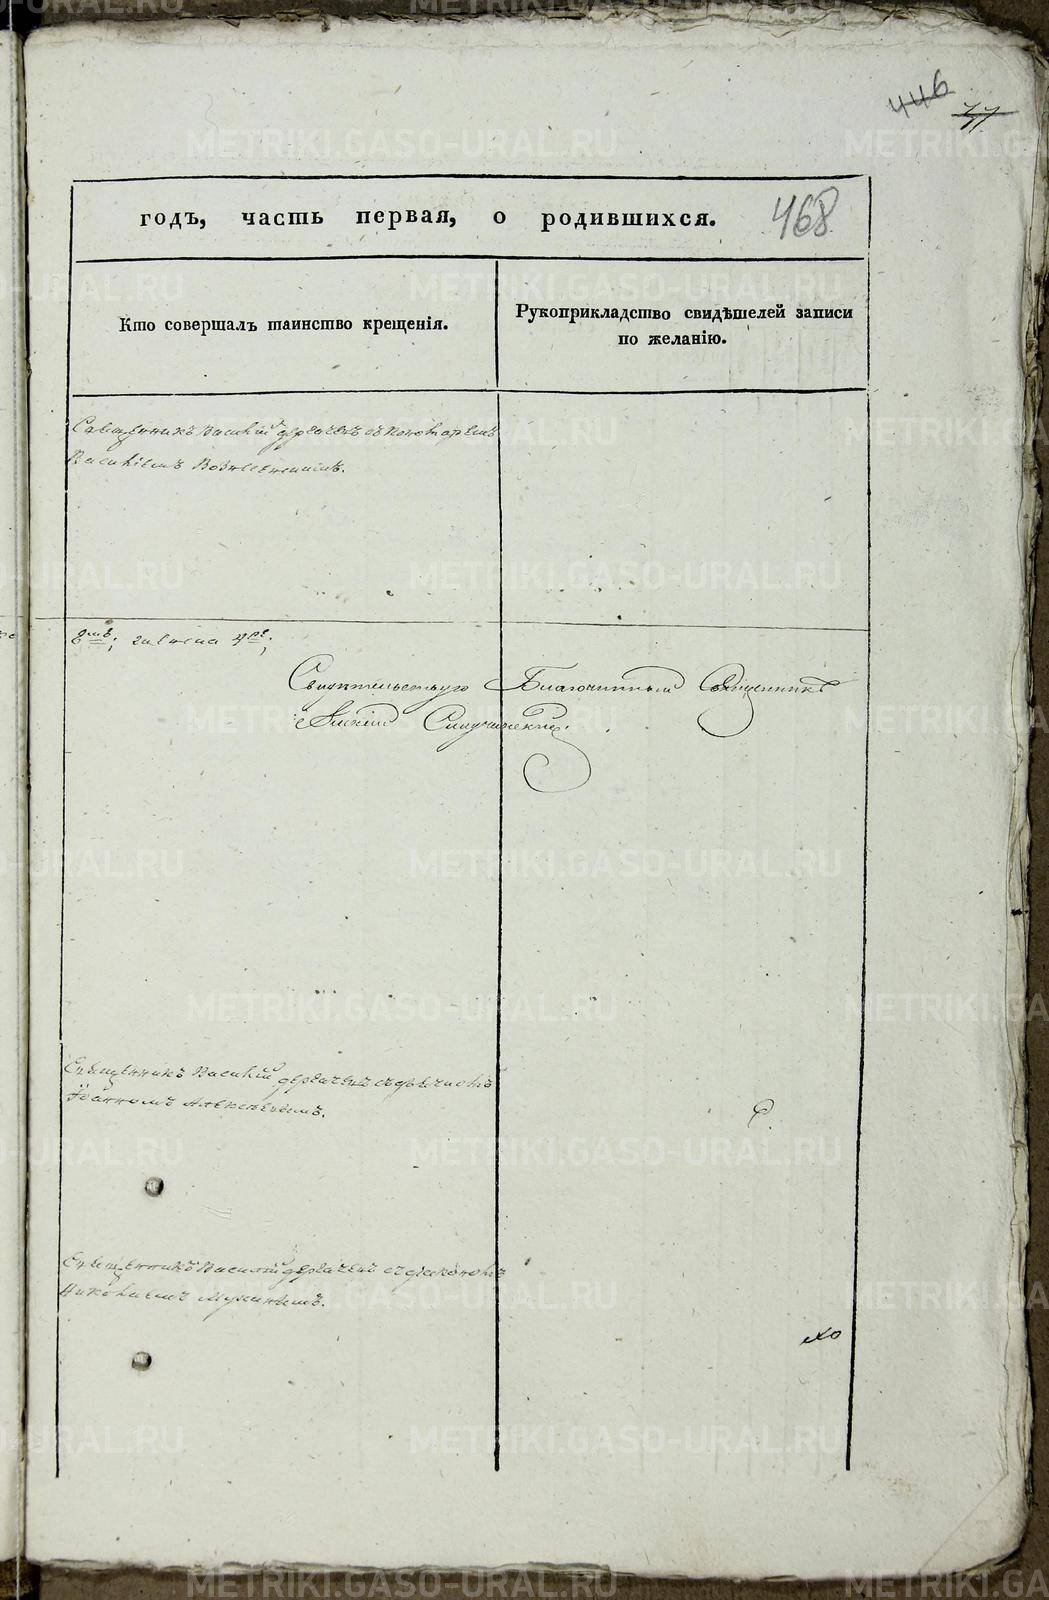 446
77
годъ, часть первая, о родившихся. 468
Кто совершалъ таинство крещенія.
Рукоприкладство свидѣтелей записи
по желанію.
Священникъ Василій съ пономаремъ
Василіемъ Вознесенскимъ.
Свидѣтельствую Благочинный Священникъ
Священникъ Василій съ дьячкомъ
Іоанномъ Алексѣевымъ.
Священникъ Василій съ діакономъ
METRIKI.GASO-URAL.RU